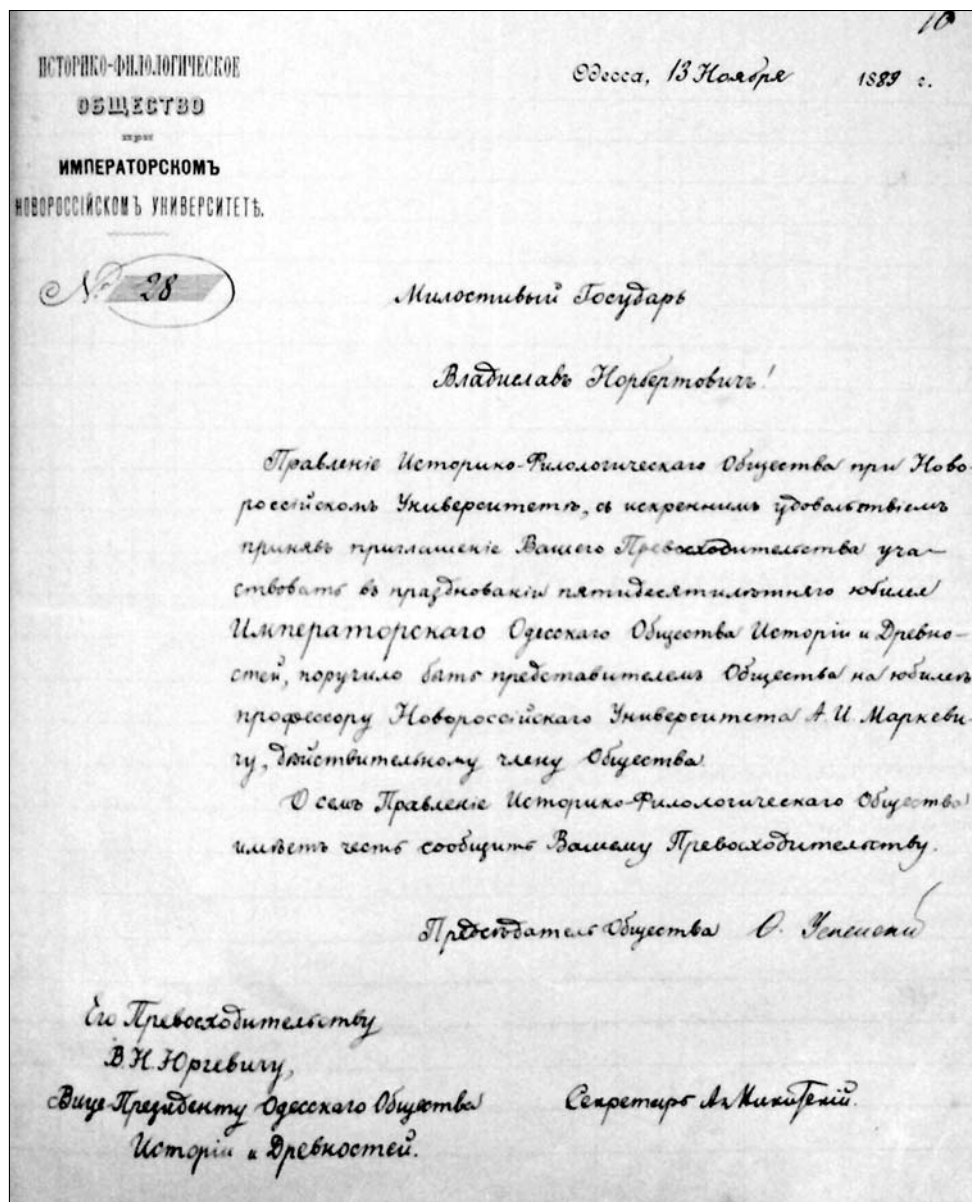 10
ИСТОРИКО-ФИЛОЛОГИЧЕСКОЕ
ОБЩЕСТВО
при
ИМПЕРАТОРСКОМЪ
НОВОРОССІЙСКОМЪ УНИВЕРСИТЕТѢ.
Одесса, 13 Ноября 1889 г.
№ 28
Милостивый Государь
Владиславъ Норбертовичъ!
Правленіе Историко-Филологическаго Общества при Ново-
россійскомъ Университетѣ, съ искреннимъ удовольствіемъ
принявъ приглашеніе Вашего Превосходительства уча-
ствовать въ празднованіи пятидесятилѣтняго юбилея
Императорскаго Одесскаго Общества Исторіи и Древно-
стей, поручило быть представителемъ Общества на юбилеѣ
профессору Новороссійскаго Университета А. И. Маркеви-
чу, дѣйствительному члену Общества.
О семъ Правленіе Историко-Филологическаго Общества
имѣетъ честь сообщить Вашему Превосходительству.
Предсѣдатель Общества Ѳ. Успенскій
Его Превосходительству
В. Н. Юргевичу,
Вице-Президенту Одесскаго Общества
Исторіи и Древностей.
Секретарь Ал. Никитскій.